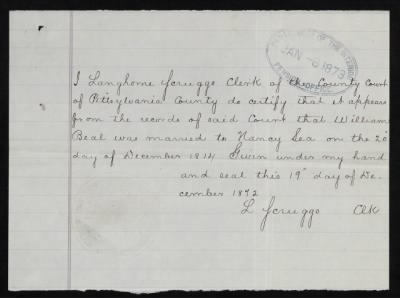 DEPARTMENT OF THE INTERIOR
JAN -6 1873
PENSION OFFICE
I Langhorne Scruggs Clerk of the County Court
of Pittsylvania County do certify that it appears
from the records of said Court that William
Beal was married to Nancy Sea on the 20
day of December 1814 Given under my hand
and seal this 19" day of De-
cember 1872
L Scruggs Clk